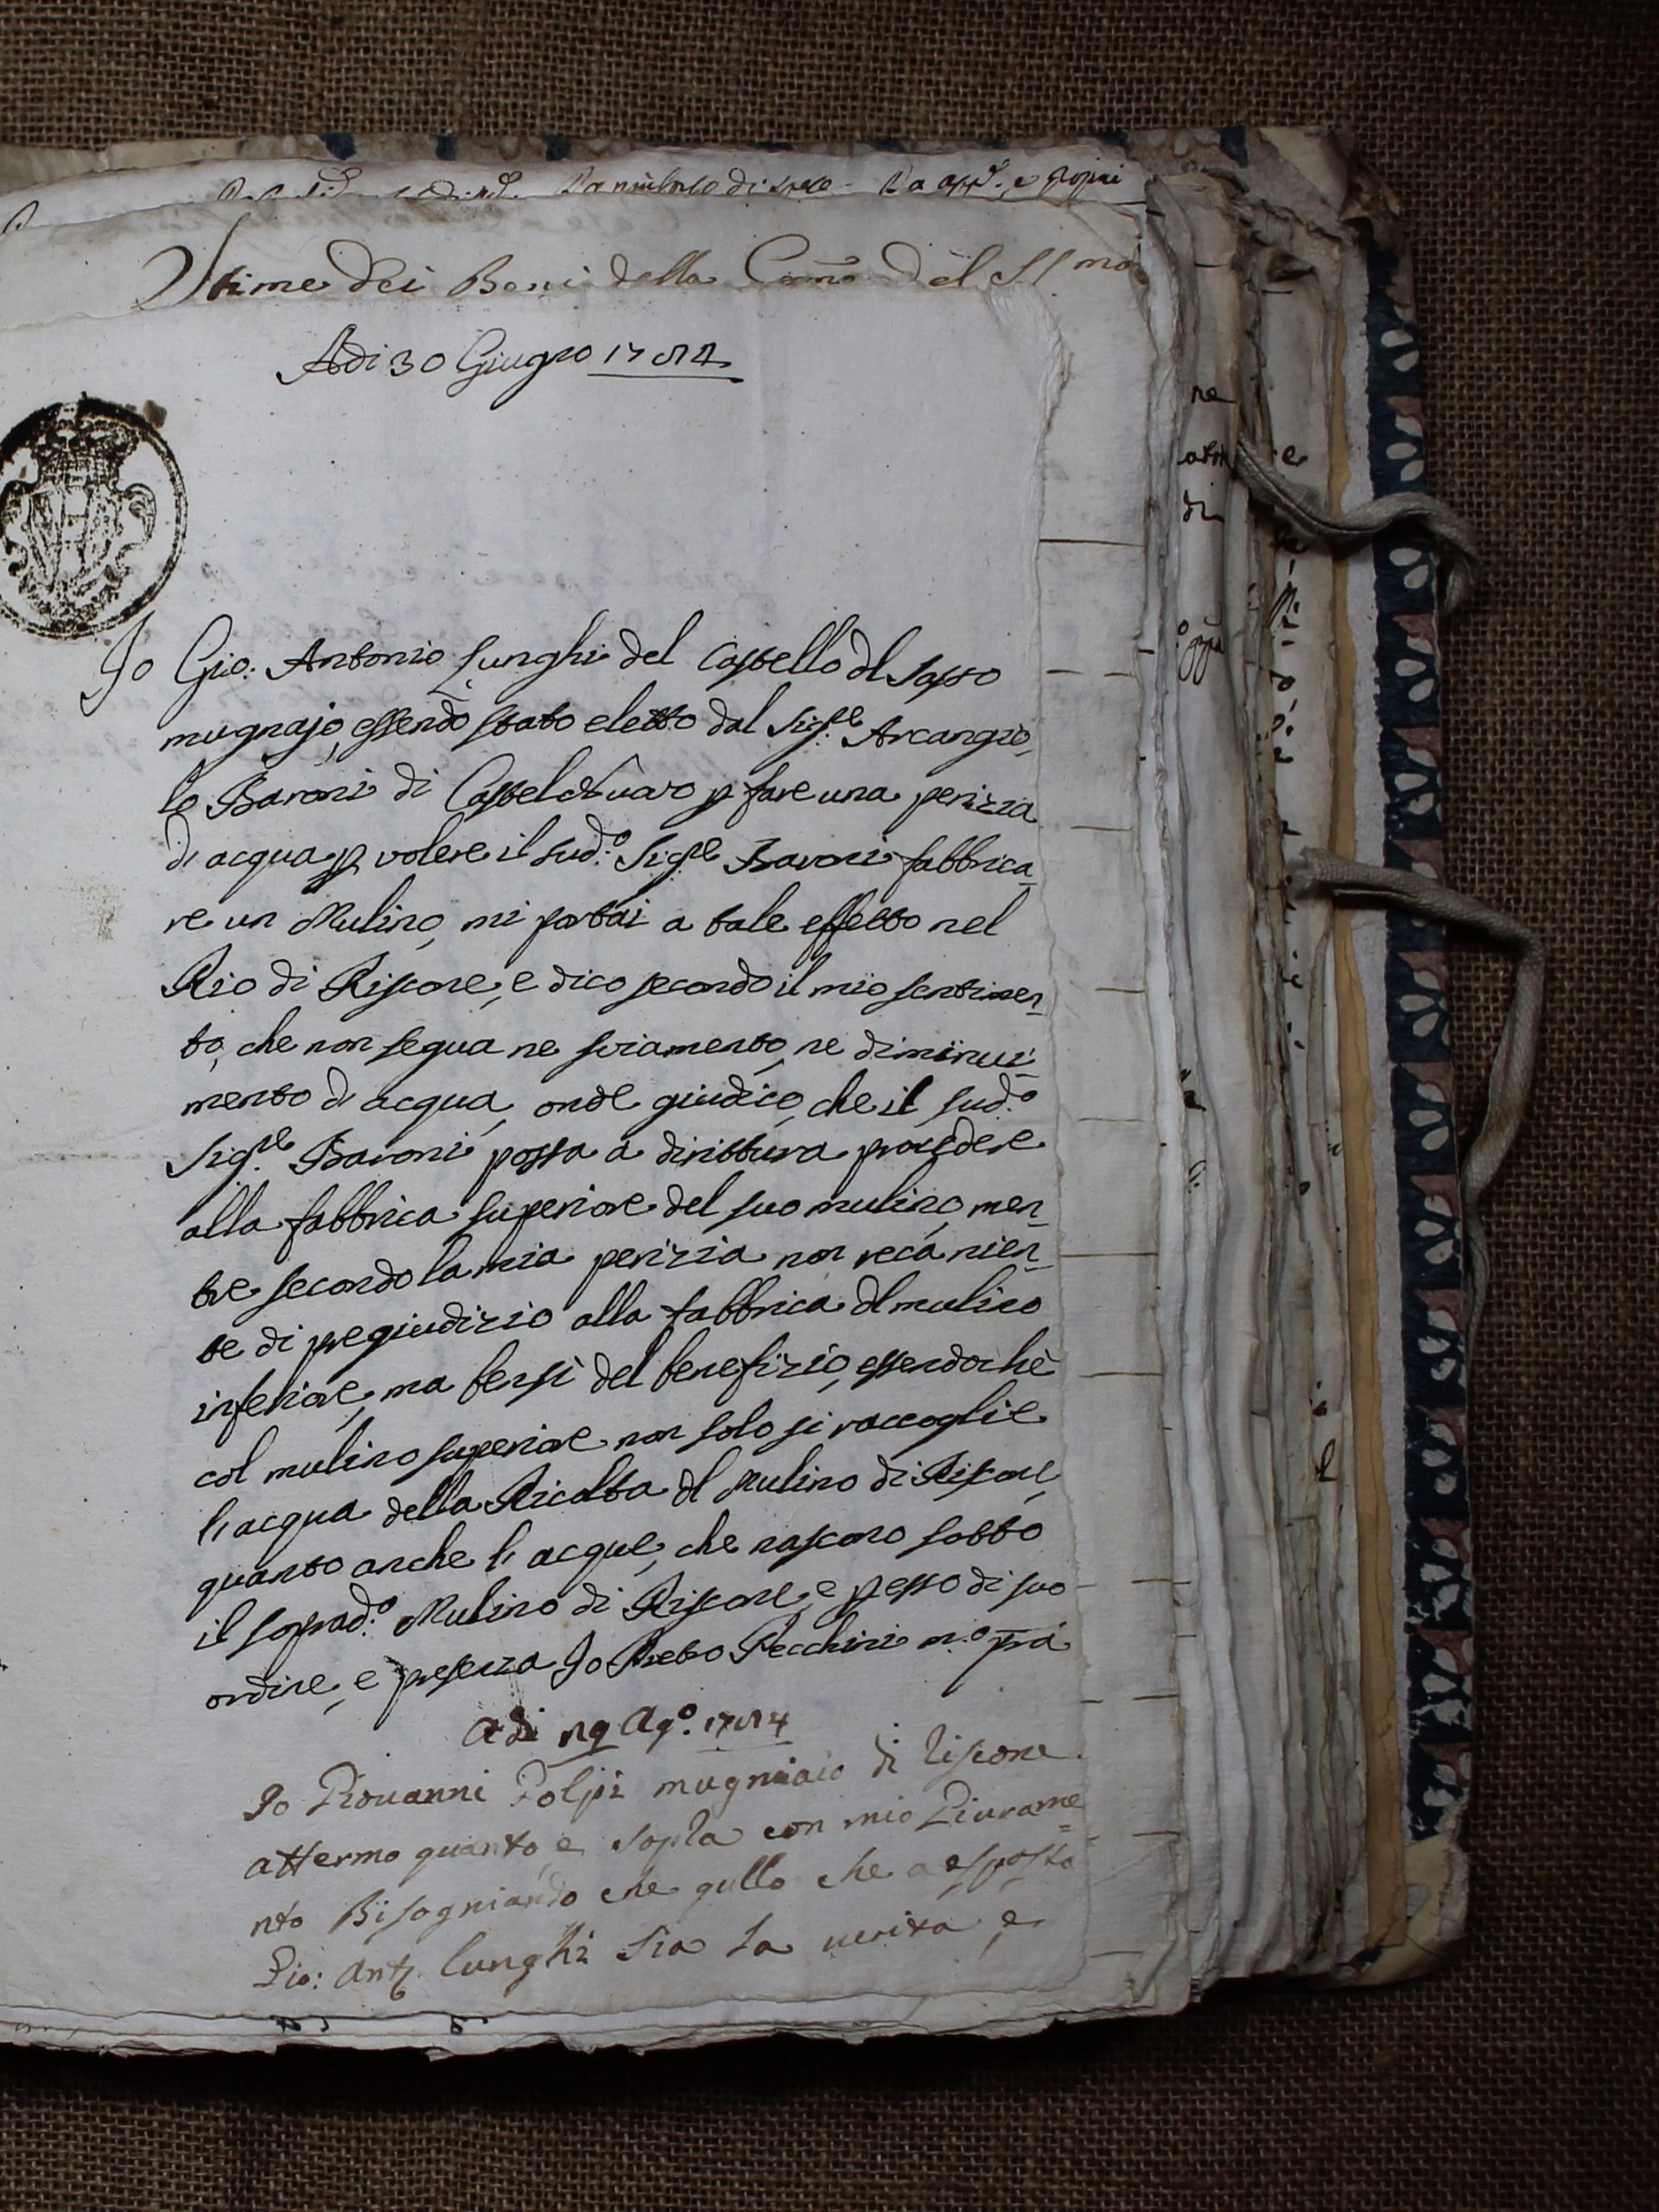 Stime dei Beni della Com̃a del SSmo
Adi 30 Giugno 17
Io Gio: Antonio Lunghi del Castello dl Sasso
mugnajo, essendo stato eletto dal Sig.re Arcangio,
lo Baroni di Castel p fare una perizia
di acqua p volere il sud.o Sig.re Baroni fabbrica-
re un Mulino, mi portai a tale effetto nel
Rio di Riscone, e dico secondo il mio sentimen-
to, che non segua ne sviamento, ne diminui-
mento di acqua, onde giudico, che il sud.o
Sig.re Baroni possa a dirittura procedere
alla fabbrica superiore del suo mulino, men-
tre secondo la mia perizia non reca nien-
te di pregiudizio alla fabbrica dl mulino
inferiore, ma bensì del benefizio, essendochè
col mulino superiore non solo si raccoglie
l'acqua della Ricolta dl Mulino di Riscone,
quanto anche l'acque, che nascono sotto
il soprad.o Mulino di Riscone, e p esso di suo
ordine, e presenza Io Pietro Pecchini m.o pra
a di Ag.o
Io Giovanni Polpi mugniaio di Riscone
affermo quanto, e, sopla con mio Giurame=
nto Bisogniando che qullo che a esposto
Gio: Ant. Lunghi Sia la verita, e,